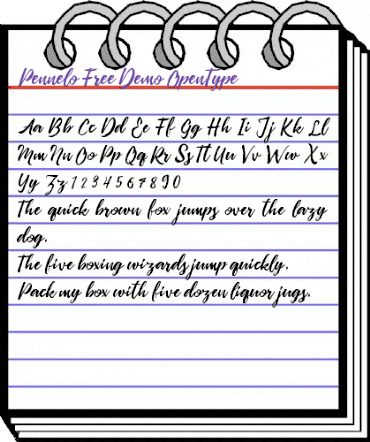 Pennelo Free Demo OpenType
Aa Bb Cc Dd Ee Ff Gg Hh Ii Jj Kk Ll
Mm Nn Oo Pp Qq Rr Ss Tt Uu Vv Ww Xx
Yy Zz 1 2 3 4 5 6 7 8 9 0
The quick brown fox jumps over the lazy
dog.
The five boxing wizards jump quickly.
Pack my box with five dozen liquor jugs.